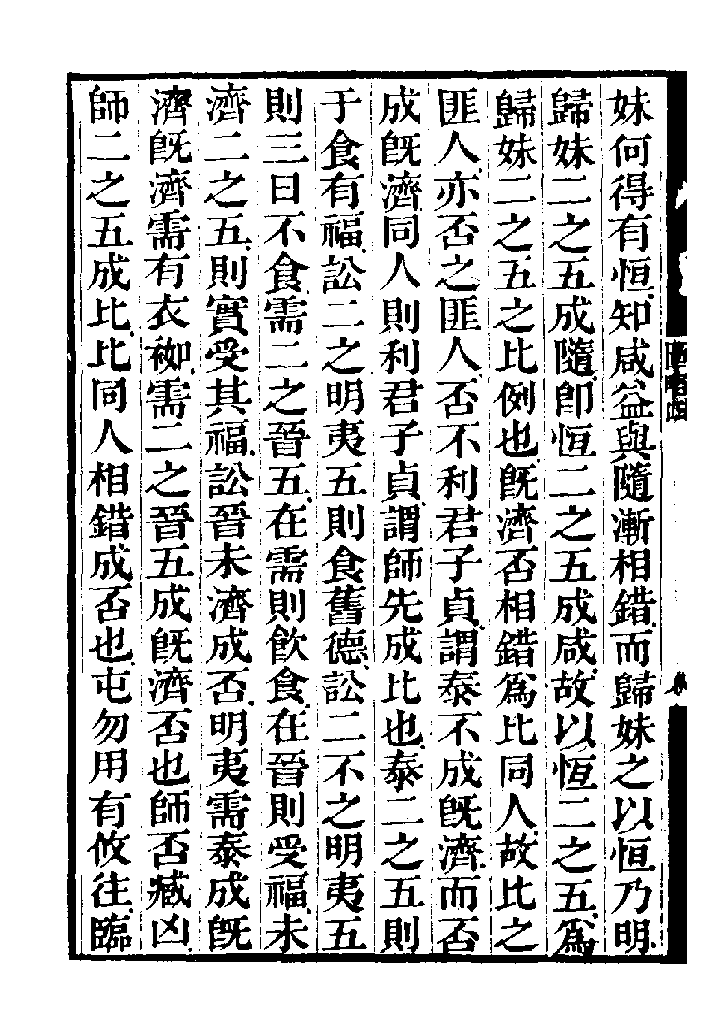 妹何得有恒知咸益與隨漸相錯而歸妹之以恒乃明
歸妹二之五成隨卽恒二之五成咸故以恒二之五爲
歸妹二之五之比例也旣濟否相錯爲比同人故比之
匪人亦否之匪人否不利君子貞謂泰不成旣濟而否
成旣濟同人則利君子貞謂師先成比也泰二之五則
于食有福訟二之明夷五則食舊德訟二不之明夷五
則三日不食需二之晉五在需則飲食在晉則受福未
濟二之五則實受其福訟晉未濟成否明夷需泰成旣
濟旣濟需有衣袽需二之晉五成旣濟否也師否臧凶
師二之五成比比同人相錯成否也屯勿用有攸往臨